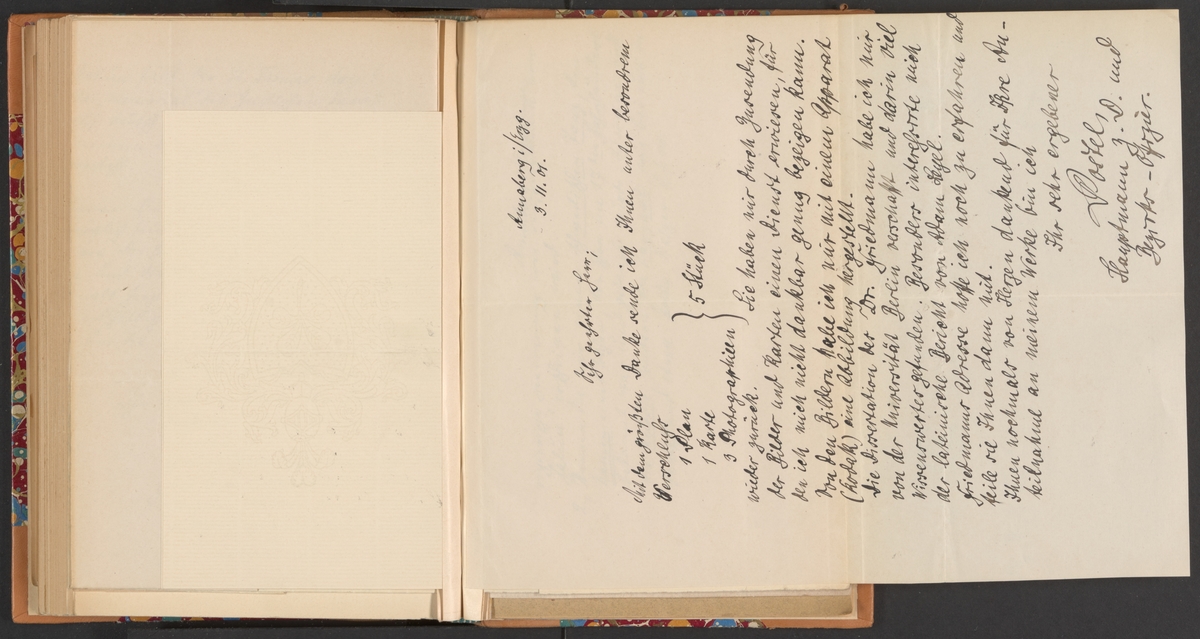 Annaberg i/Erzg.
3. 11. 01.
Sehr geehrter Herr,
Mit dem größten Danke sende ich Ihnen unter besondrem
Verschluß
1 Plan
1 Karte
3 Photographieen } 5 Stück
wieder zurück. Sie haben mir durch Zusendung
der Bilder und Karten einen Dienst erwiesen, für
den ich mich nicht dankbar genug bezeigen kann.
Von den Bildern habe ich mir mit einem Apparat
(Kodak) eine Abbildung hergestellt.
Die Dissertation der Dr. Friedmann habe ich mir
von der Universität Berlin verschafft und darin viel
Wissenswertes gefunden. Besonders interessirte mich
der lateinische Bericht von Adam
Friedmanns Adresse hoffe ich noch zu erfahren und
teile sie Ihnen dann mit.
Ihnen nochmals von Herzen dankend für Ihre An-
teilnahme an meinem Werke bin ich
Ihr sehr ergebener
Postel,
Hauptmann z. D. und
Bezirks-Offizier.